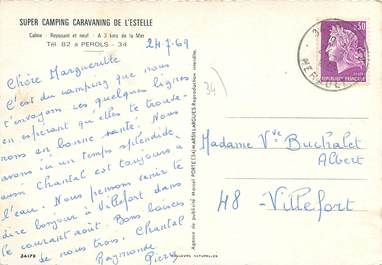 SUPER CAMPING CARAVANING DE L'ESTELLE
Calme - Reposant et neuf - A 3 kms de la Mer
Tél. 82 à PEROLS - 34
24-7-69
Chère Marguerite
C'est du camping que nous
t'envoyons ces quelques lignes
en espérant qu'elles te trouve-
rons en bonne santé. Nous
avons ici un temps splendide
aussi Chantal est toujours à
l'eau. Nous pensons venir te
dire bonjour à Villefort dans
le courant août. Bons baisers
de nous trois. Chantal
Raymonde Pierre
34
Madame Vve Buchalet
Albert
48 - Villefort
Agence de publicité Marcel PORTE (34) MARSILLARGUES Reproduction interdite.
0,50
REPUBLIQUE FRANCAISE
COULEURS NATURELLES